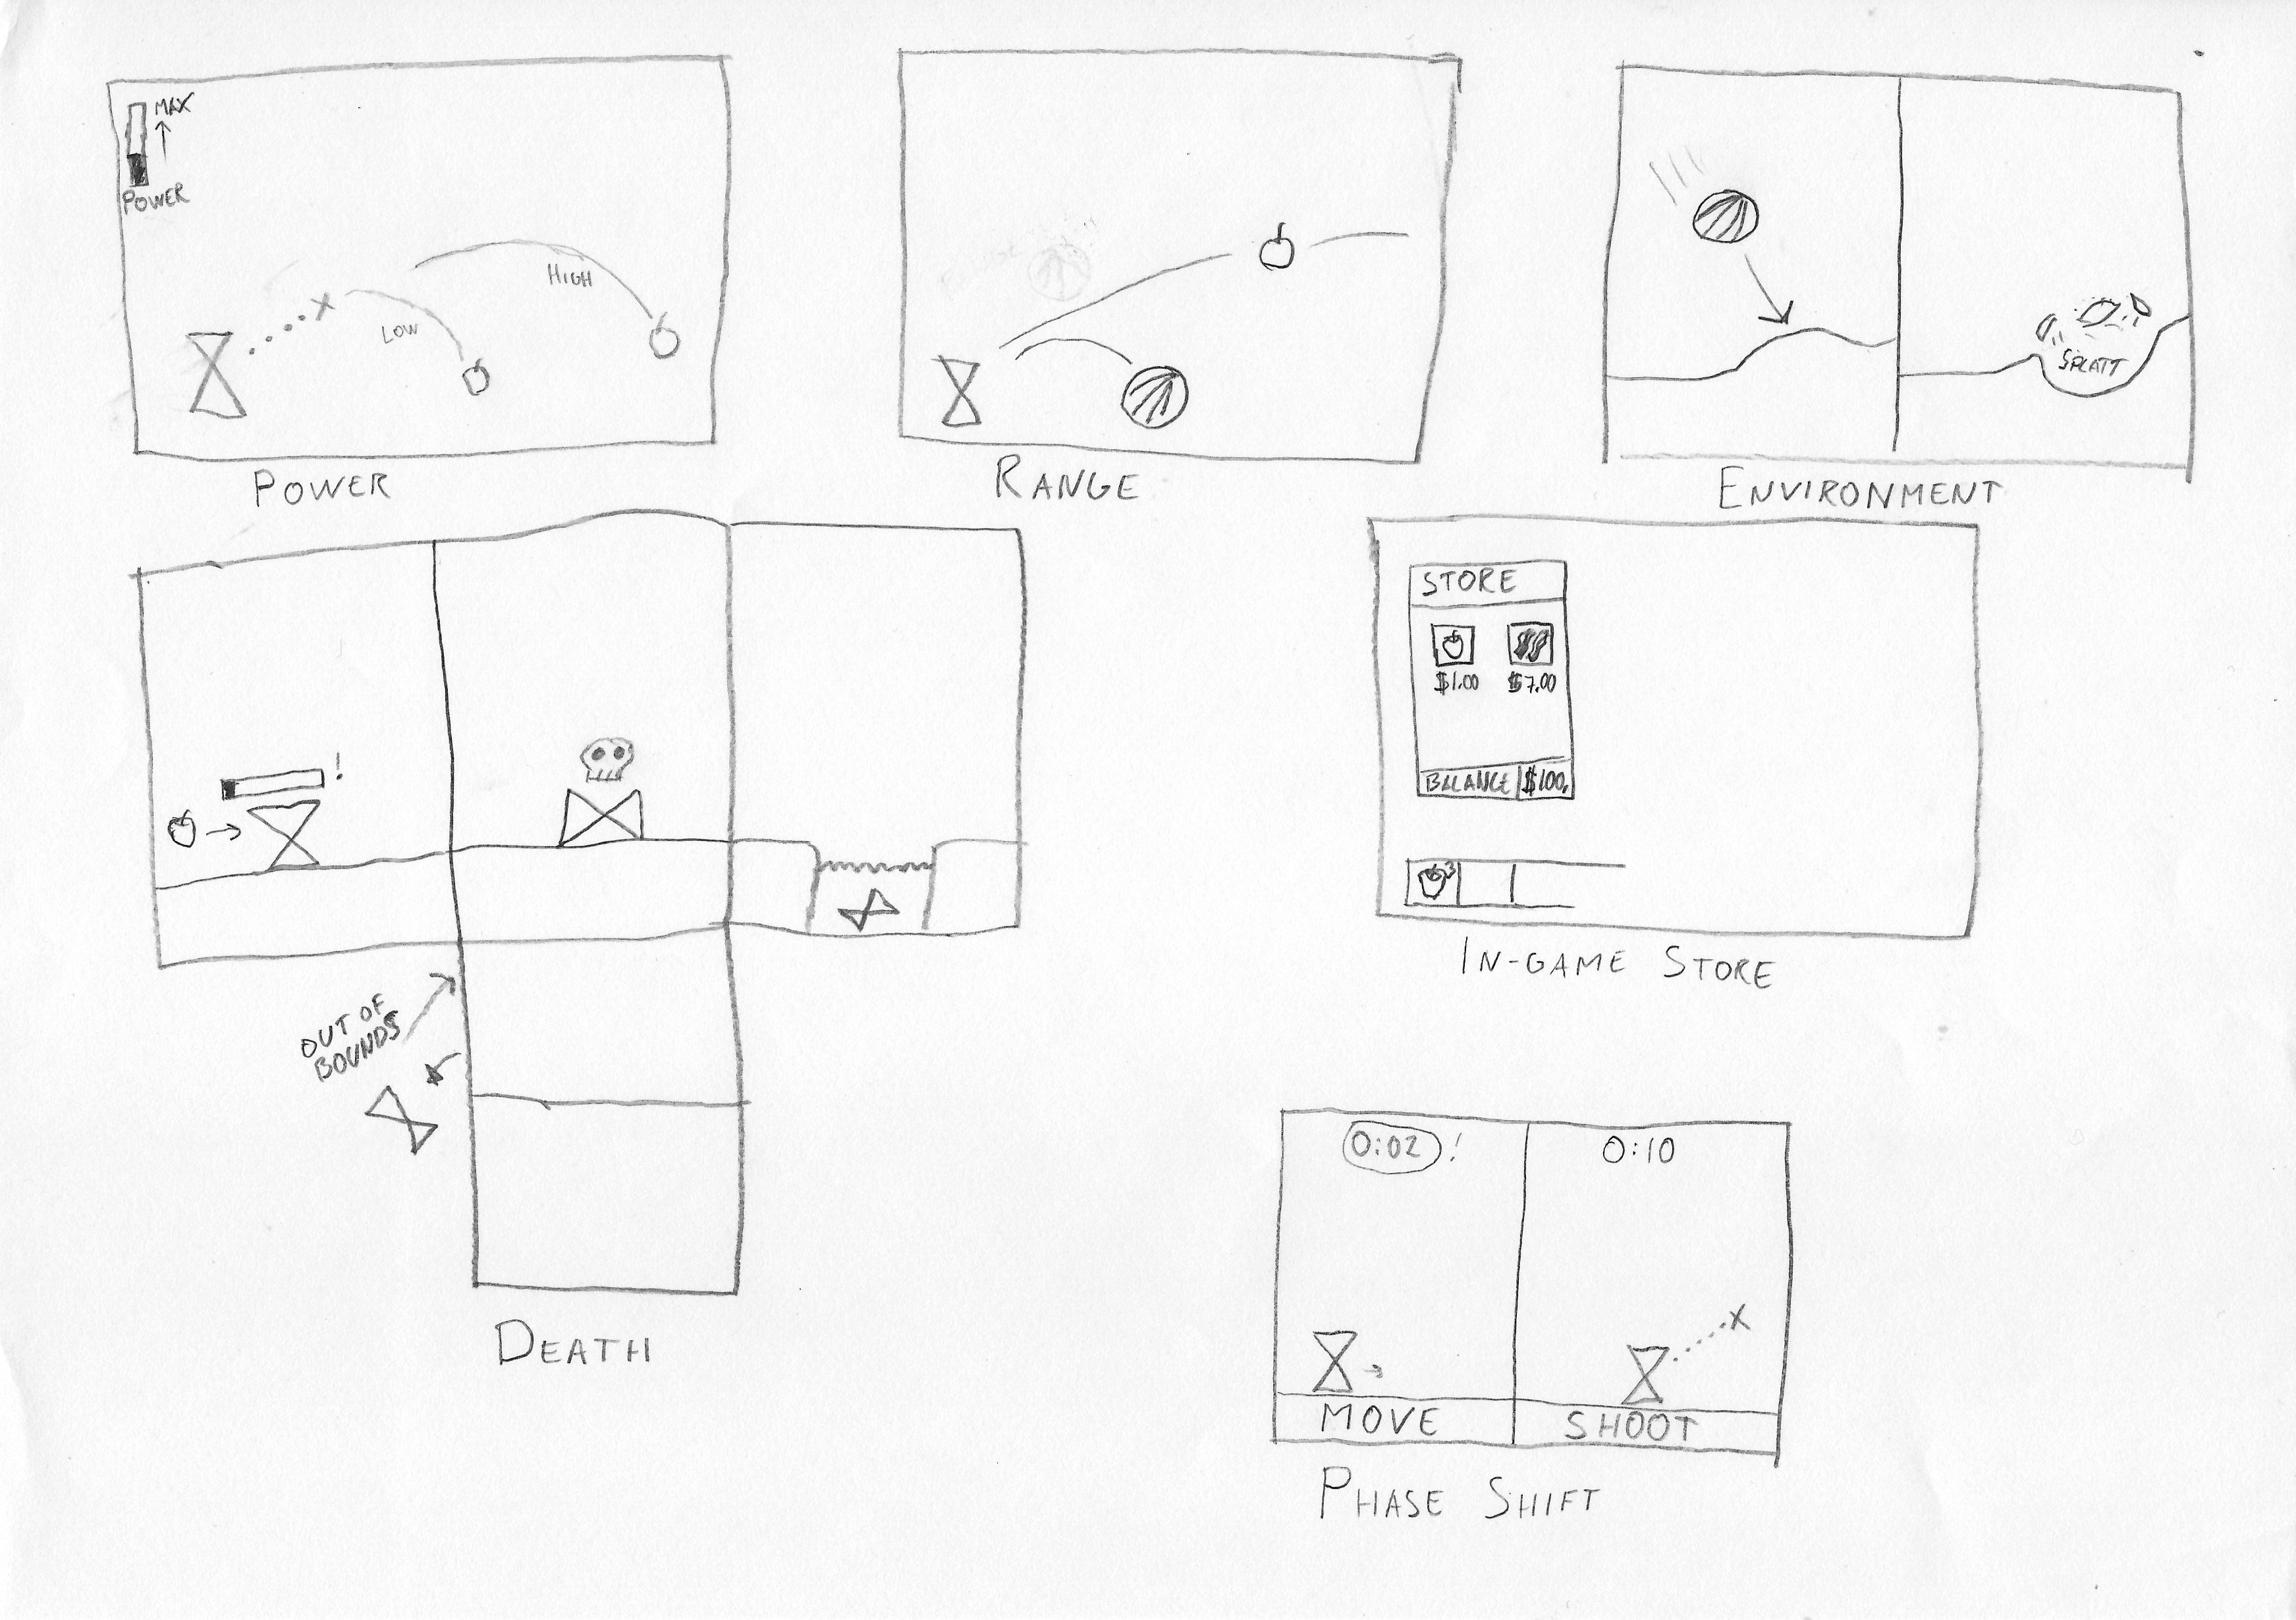 MAX
POWER
HIGH
LOW
POWER
RANGE
SPLATT
ENVIRONMENT
!
OUT OF
BOUNDS
DEATH
STORE
$1.00 $7.00
BALANCE $100,
3
IN-GAME STORE
0:02 ! 0:10
MOVE SHOOT
PHASE SHIFT